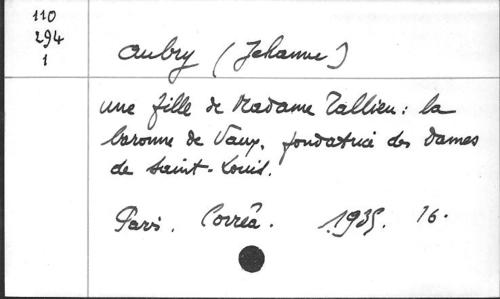 110
294
1
Aubry (Jehanne)
une fille de Madame Tallien : la
baronne de Vaux, fondatrice des dames
de Saint-Louis.
Paris. Corrêa. 1935. 16.